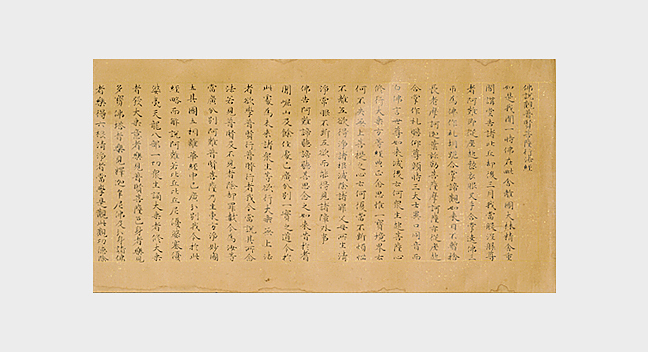 佛說觀普賢菩薩行法經
如是我聞一時佛在毗舍離國大林精舍重
閣講堂告諸比丘却後三月我當般涅槃尊
者阿難即從座起整衣服叉手合掌遶佛三
帀為佛作禮胡跪合掌諦觀如來目不暫捨
長老摩訶迦葉彌勒菩薩摩訶薩亦從座起
合掌作禮瞻仰尊顏時三大士異口同音而
白佛言世尊如來滅後云何眾生起菩薩心
修行大乘方等經典正念思惟一實境界云
何不失無上菩提之心云何復當不斷煩惱
不離五欲得淨諸根滅除諸罪父母所生清
淨常眼不斷五欲而能得見諸障外事
佛告阿難諦聽諦聽善思念之如來昔於耆
闍崛山及餘住處已廣分別一實之道今於
此處為未來諸眾生等欲行大乘無上法
者欲學普賢行普賢行者我今當說其所念
法若見普賢及不見者除却罪數今為汝等
當廣分別阿難普賢菩薩乃生東方淨妙國
土其國土相雜華經中已廣分別我今於此
經略而解說阿難若比丘比丘尼優婆塞優
婆夷天龍八部一切眾生誦大乘者修大乘
者發大乘意者樂見普賢菩薩色身者樂見
多寶佛塔者樂見釋迦牟尼佛及分身諸佛
者樂得六根清淨者當學是觀此觀功德除